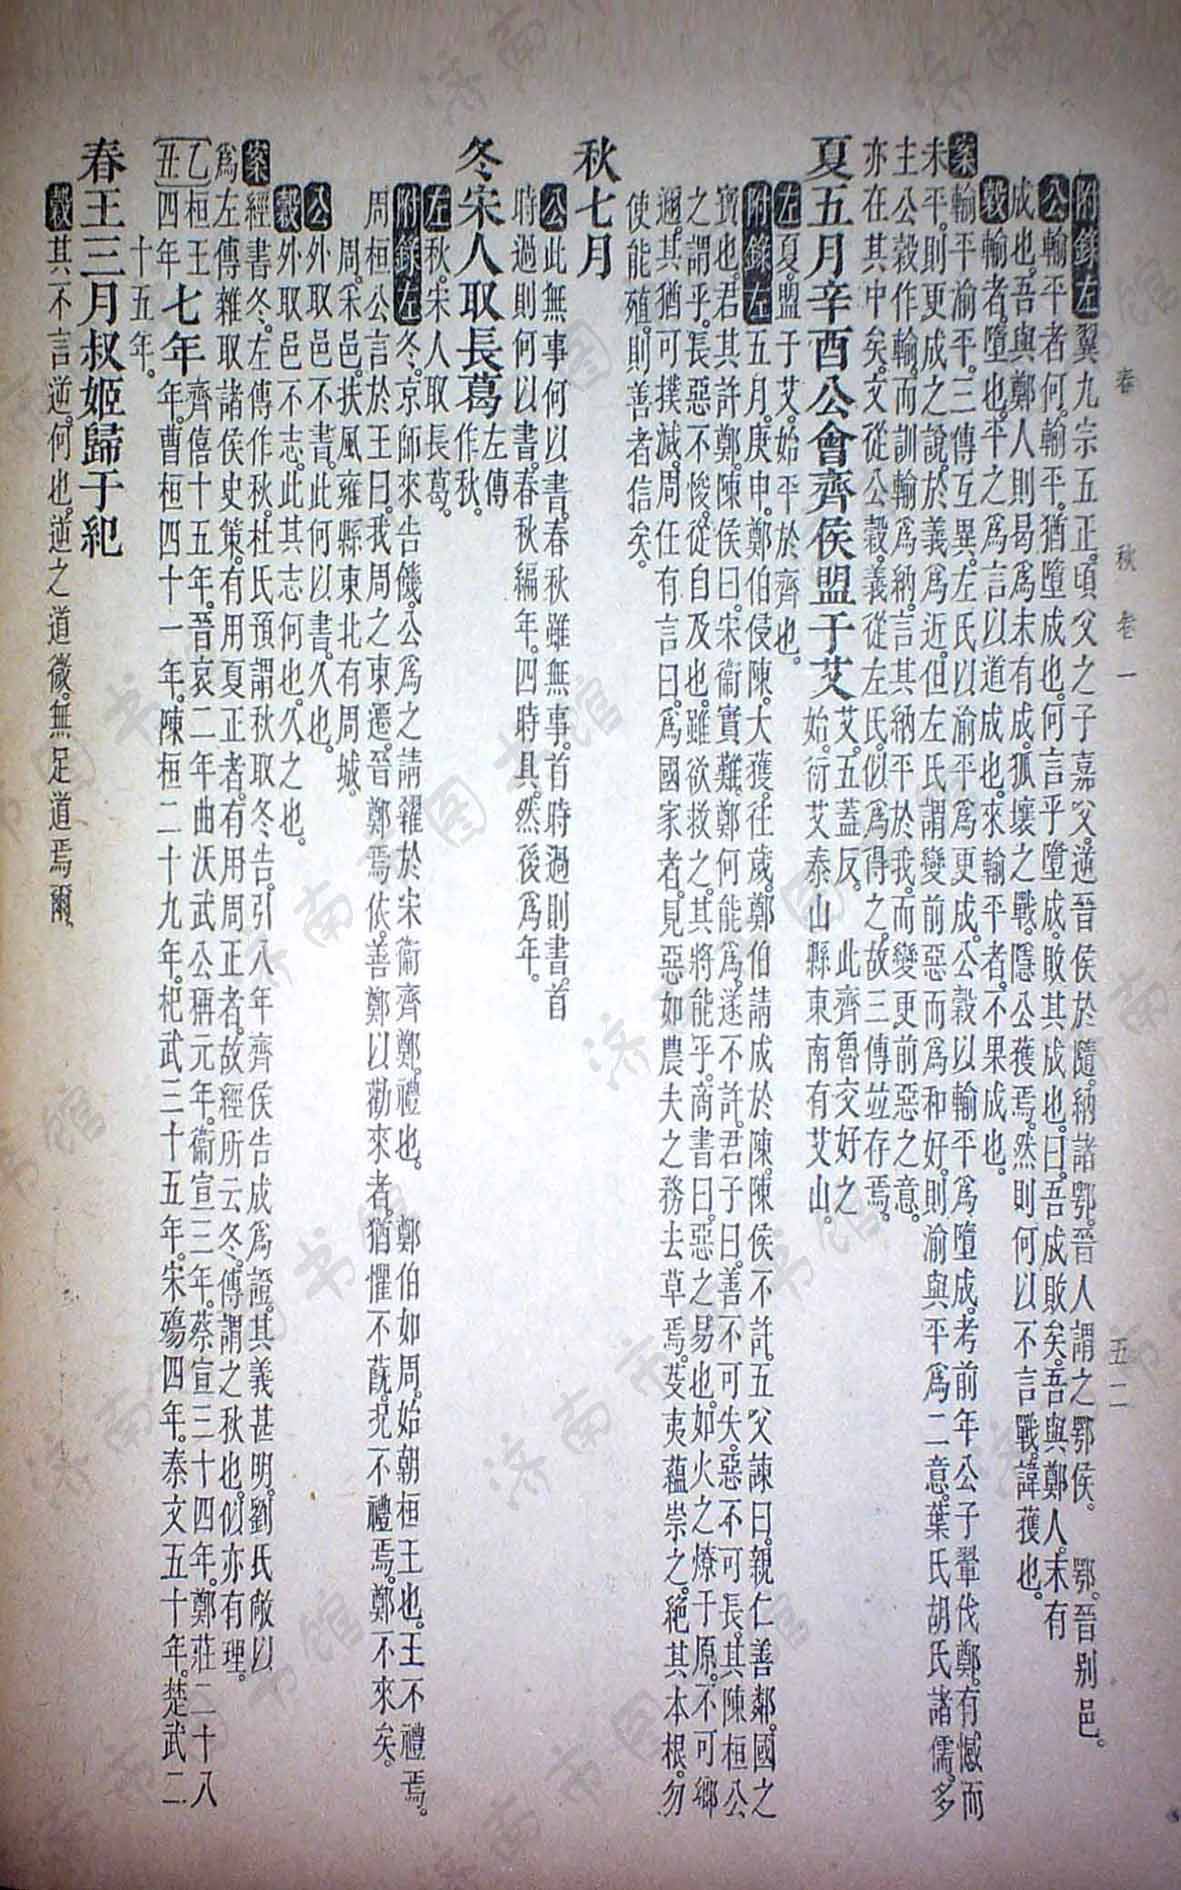 春秋 卷一 五二
附錄左翼九宗五正。頃父之子嘉父。逆晉侯於隨。納諸鄂。晉人謂之鄂侯。鄂。晉別邑。
公輸平者何。輸平。猶墮成也。何言乎墮成。敗其成也。曰。吾成敗矣。吾與鄭人。末有
成也。吾與鄭人則曷爲末有成。狐壤之戰。隱公獲焉。然則何以不言戰。諱獲也。
穀輸者。墮也。平之爲言以道成也。來輸平者。不果成也。
案輸平渝平。三傳互異。左氏以渝平爲更成。公穀以輸平爲墮成。考前年公子翬伐鄭。有憾而
未平。則更成之說。於義爲近。但左氏謂變前惡而爲和好。則渝與平爲二意。葉氏胡氏諸儒。多
主公穀作輸。而訓輸爲納。言其納平於我。而變更前惡之意。
亦在其中矣。文從公穀。義從左氏。似爲得之。故三傳並存焉。
夏五月辛酉公會齊侯盟于艾艾。五蓋反。此齊魯交好之
始。衍艾泰山縣東南有艾山。
左夏盟于艾。始平於齊也。
附錄左五月。庚申。鄭伯侵陳。大獲。往歲。鄭伯請成於陳。陳侯不許。五父諫曰。親仁善鄰。國之
寶也。君其許鄭。陳侯曰。宋衞實難。鄭何能爲。遂不許。君子曰。善不可失。惡不可長。其陳桓公
之謂乎。長惡。不悛。從自及也。雖欲救之。其將能乎。商書曰。惡之易也。如火之燎于原。不可鄉
邇。其猶可撲滅。周任有言曰。爲國家者。見惡如農夫之務去草焉。芟夷蘊崇之。絕其本根。勿
使能殖。則善者信矣。
秋七月
公此無事何以書。春秋雖無事。首時過則書。首
時過則何以書。春秋編年。四時具。然後爲年。
冬宋人取長葛左傳
作秋。
左秋。宋人取長葛。
附錄左冬。京師來告饑。公爲之請糴於宋衞齊鄭。禮也。鄭伯如周。始朝桓王也。王不禮焉。
周桓公言於王曰。我周之東遷。晉鄭焉依。善鄭以勸來者。猶懼不蔇。況不禮焉。鄭不來矣。
周。采邑。扶風雍縣東北有周城。
公外取邑不書。此何以書。久也。
穀外取邑不志。此其志何也。久之也。
案經書冬。左傳作秋。杜氏預謂秋取冬告。引八年齊侯告成爲證。其義甚明。劉氏敞以
爲左傳雜取諸侯史策。有用夏正者。有用周正者。故經所云冬。傳謂之秋也。似亦有理。
乙丑桓王四年七年齊僖十五年。晉哀二年曲沃武公稱元年。衞宣三年。蔡宣三十四年。鄭莊二十八
年。曹桓四十一年。陳桓二十九年。杞武三十五年。宋殤四年。秦文五十年。楚武二
十五年。
春王三月叔姬歸于紀
穀其不言逆。何也。逆之道微。無足道焉爾。